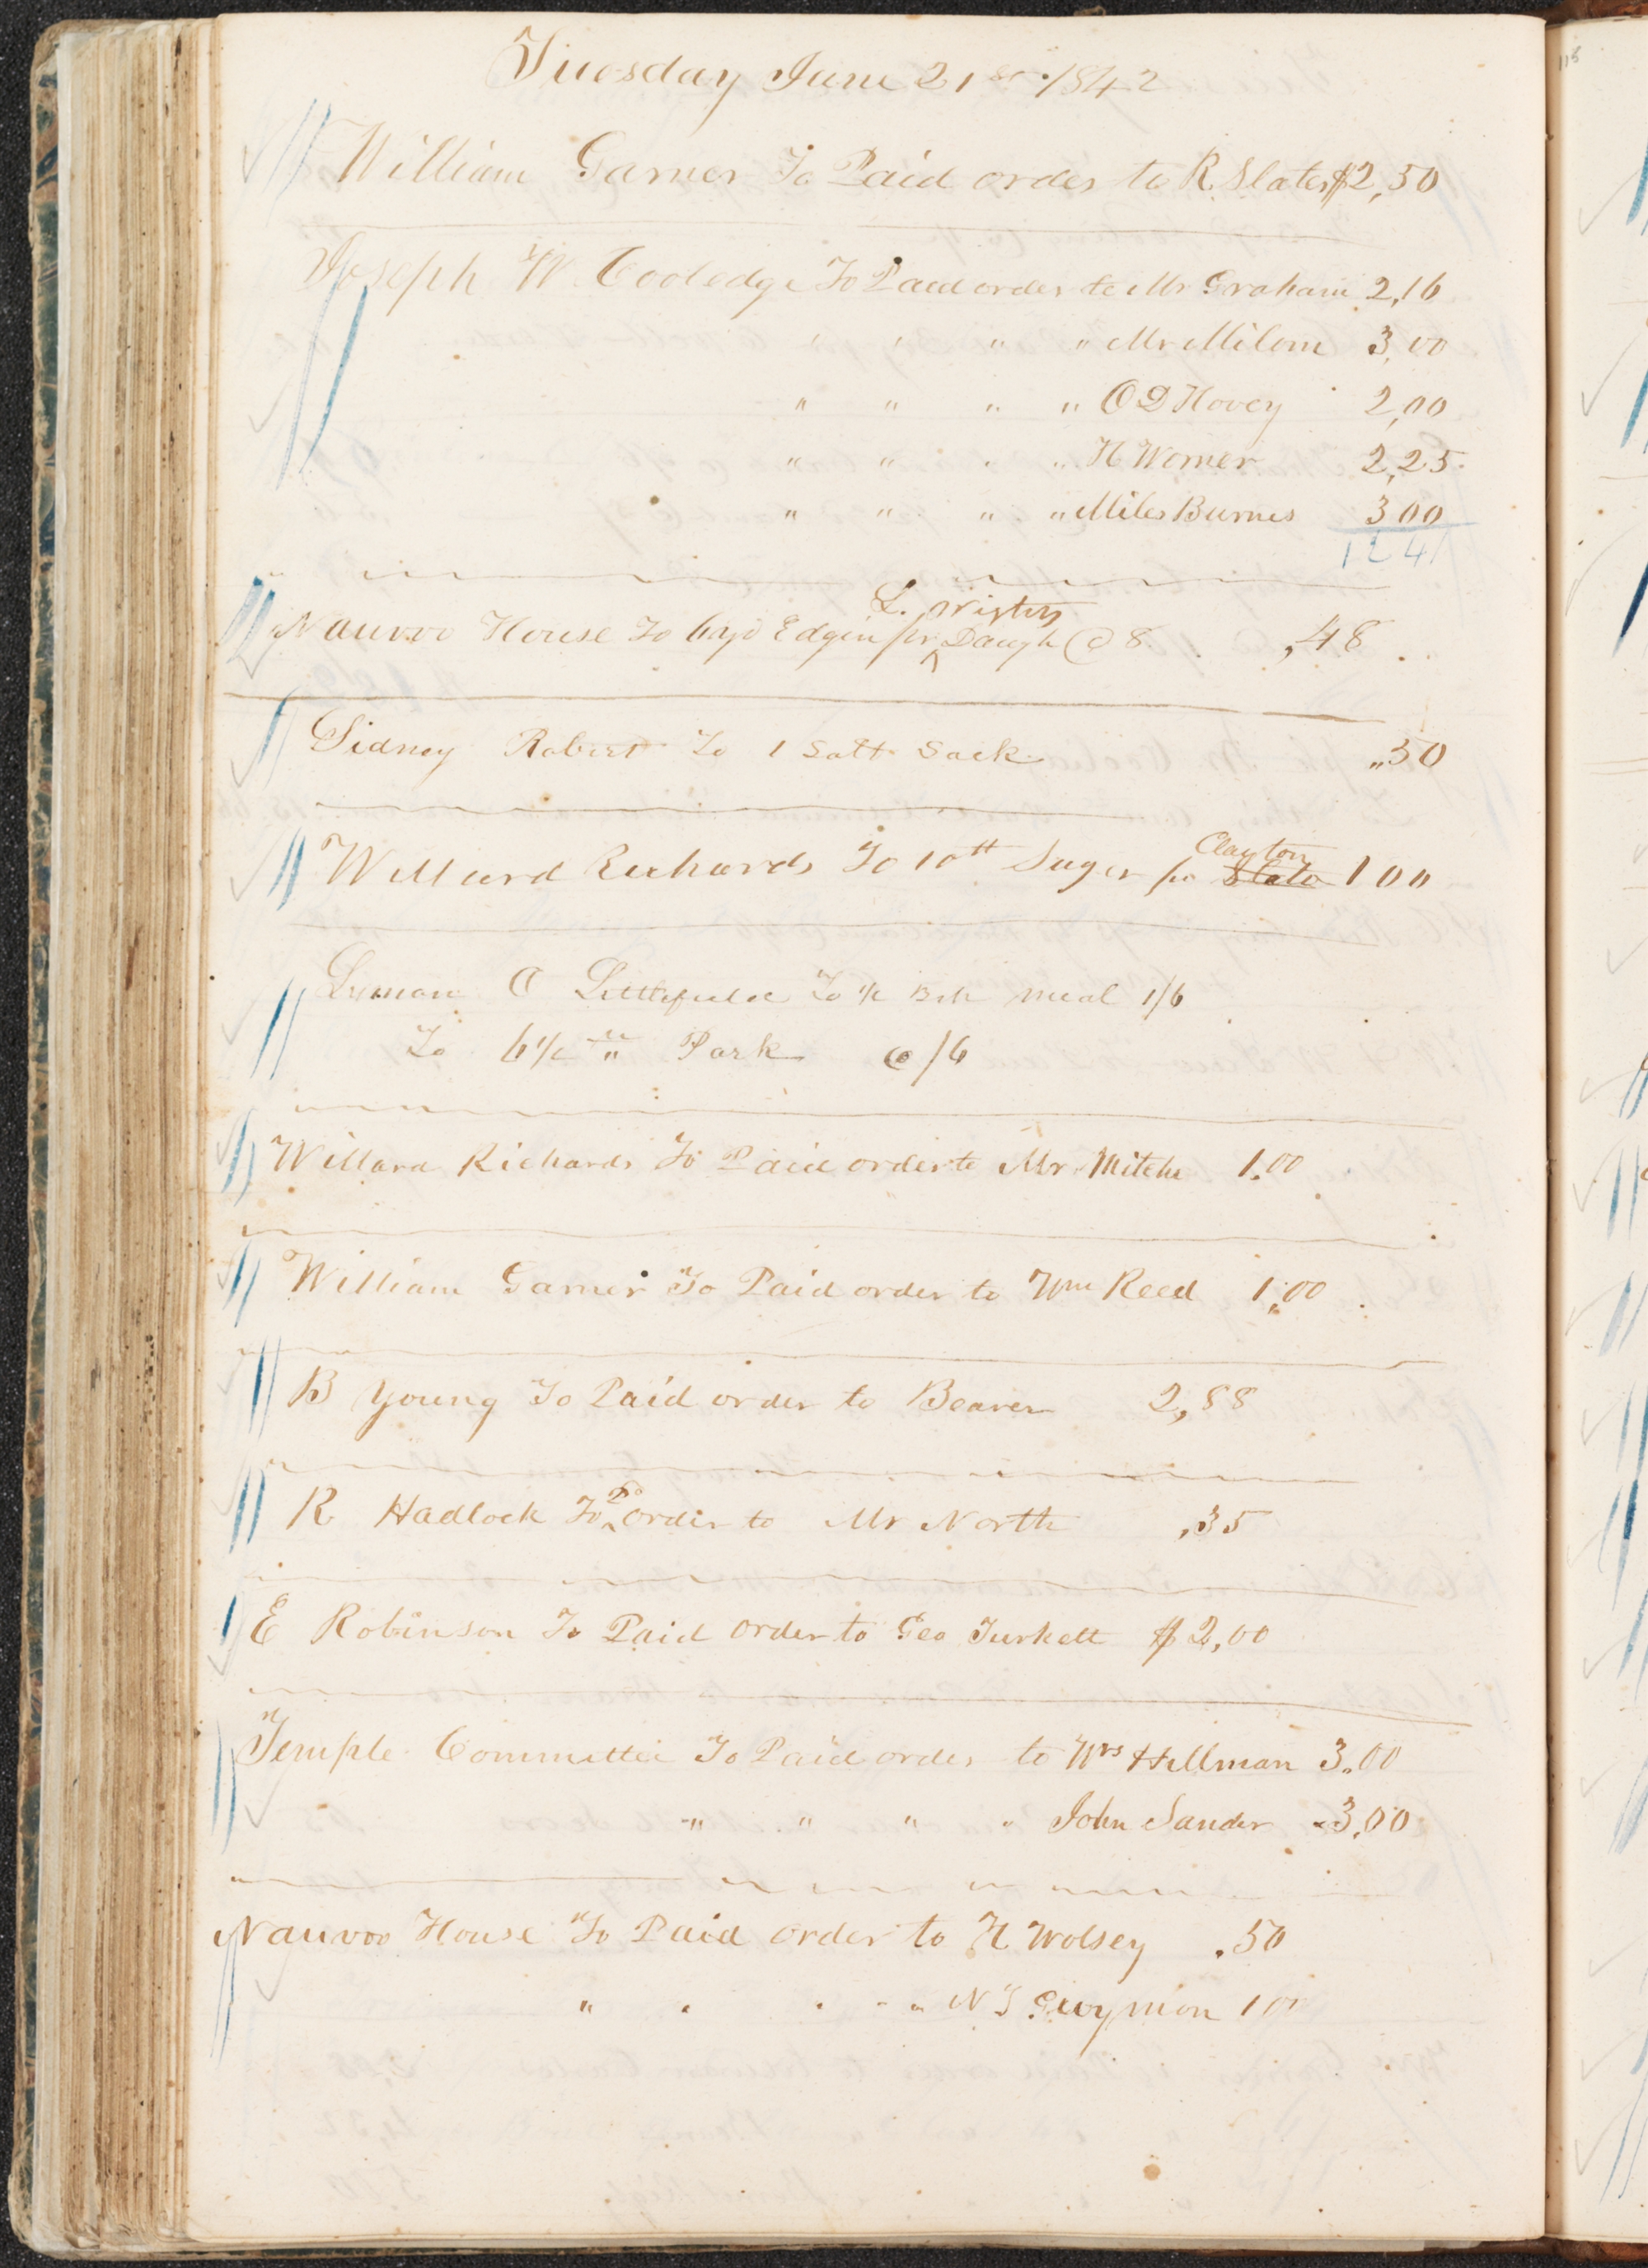 Tuesday June 21st 1842
William Garner To Paid order to R. Slater $2,50
Joseph W. Cooledge To Paid order to Mr Graham 2,16
" " " " Mr Milom 3,00
" " " " O D Hovey 2,00
" " " " H Worner 2,25
" " " " Miles Burnes 3 00
12 41
L. Wights
Nauvoo House To 6 yd Edgin pr ^ Daugh @ 8 ,48
Sidney Robert To 1 Salt Sack "50
Clayton
Willard Richards To 10 tt Suger pr Slater 1 00
Lyman O Littlefield To ½ Bsh meal 1/6
To 6½ " Pork @ /6
Willard Richards To Paid order to Mr Mitche 1.00
William Garner To Paid order to Wm Reed 1,00
B Young To Paid order to Bearer 2,88
R Hadlock To ^Pd order to Mr North ,35
E Robinson To Paid order to Geo Turkett $2,00
Temple Committee To Paid order to Wrs Hillman 3.00
" " " " John Sander 3,00
Nauvoo House To Paid order to H Wolsey .50
" " " " " N J Guymon 1 00
118